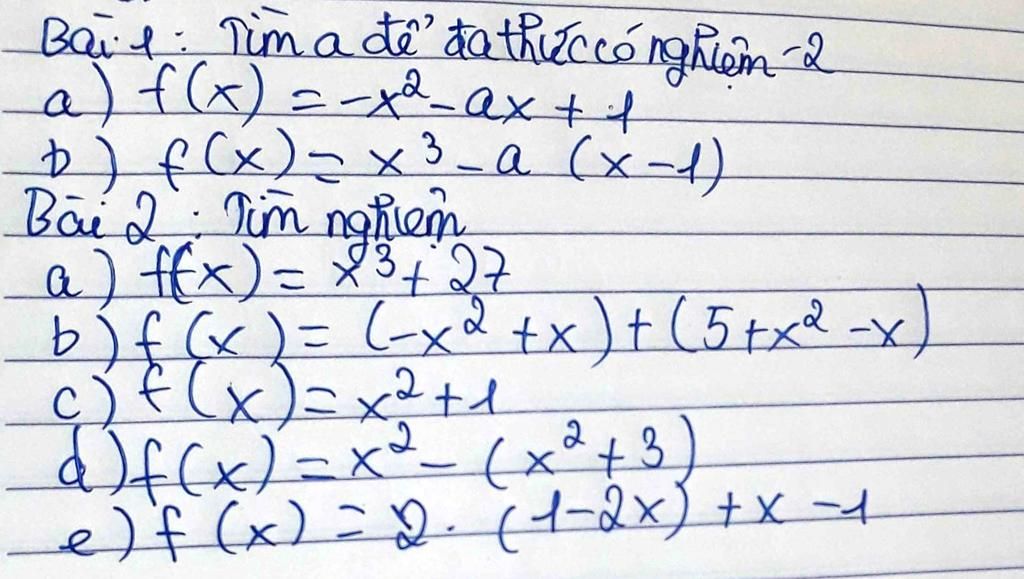 Bài 1 : Tìm a để đa thức có nghiệm -2
a) f(x) = -x² - ax + 1
b) f(x) = x³ - a (x-1)
Bài 2 : Tìm nghiệm
a) f(x) = x³ + 27
b) f(x) = (-x² + x) + (5 + x² - x)
c) f(x) = x² + 1
d) f(x) = x² - (x² + 3)
e) f(x) = 2. (1-2x) + x - 1